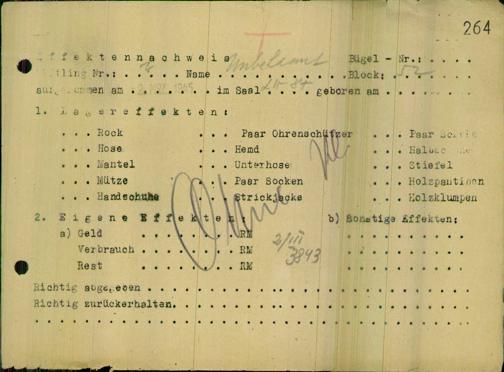 264
Effektennachweis Bügel - Nr.:
Häftling Nr.: Name Unbekannt Block:
aufgenommen am im Saal geboren am
1. Lagereffekten:
... Rock ... Paar Ohrenschützer ... Paar
... Hose ... Hemd ...
... Mantel ... Unterhose ... Stiefel
... Mütze ... Paar Socken ... Holzpantinen
... Handschuhe ... Strickjacke ... Holzklumpen
2. Eigene Effekten: b) Sonstige Effekten:
a) Geld ........ RM
Verbrauch ........ RM
Rest ........ RM
2/III
3843
Richtig abgegeben
Richtig zurückerhalten.